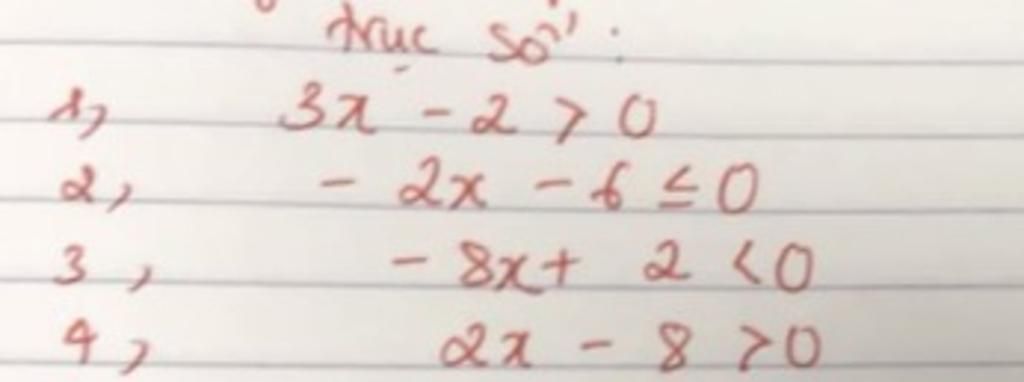 trục số :
1, 3x - 2 > 0
2, - 2x - 6 ≤ 0
3, - 8x + 2 < 0
4, 2x - 8 > 0